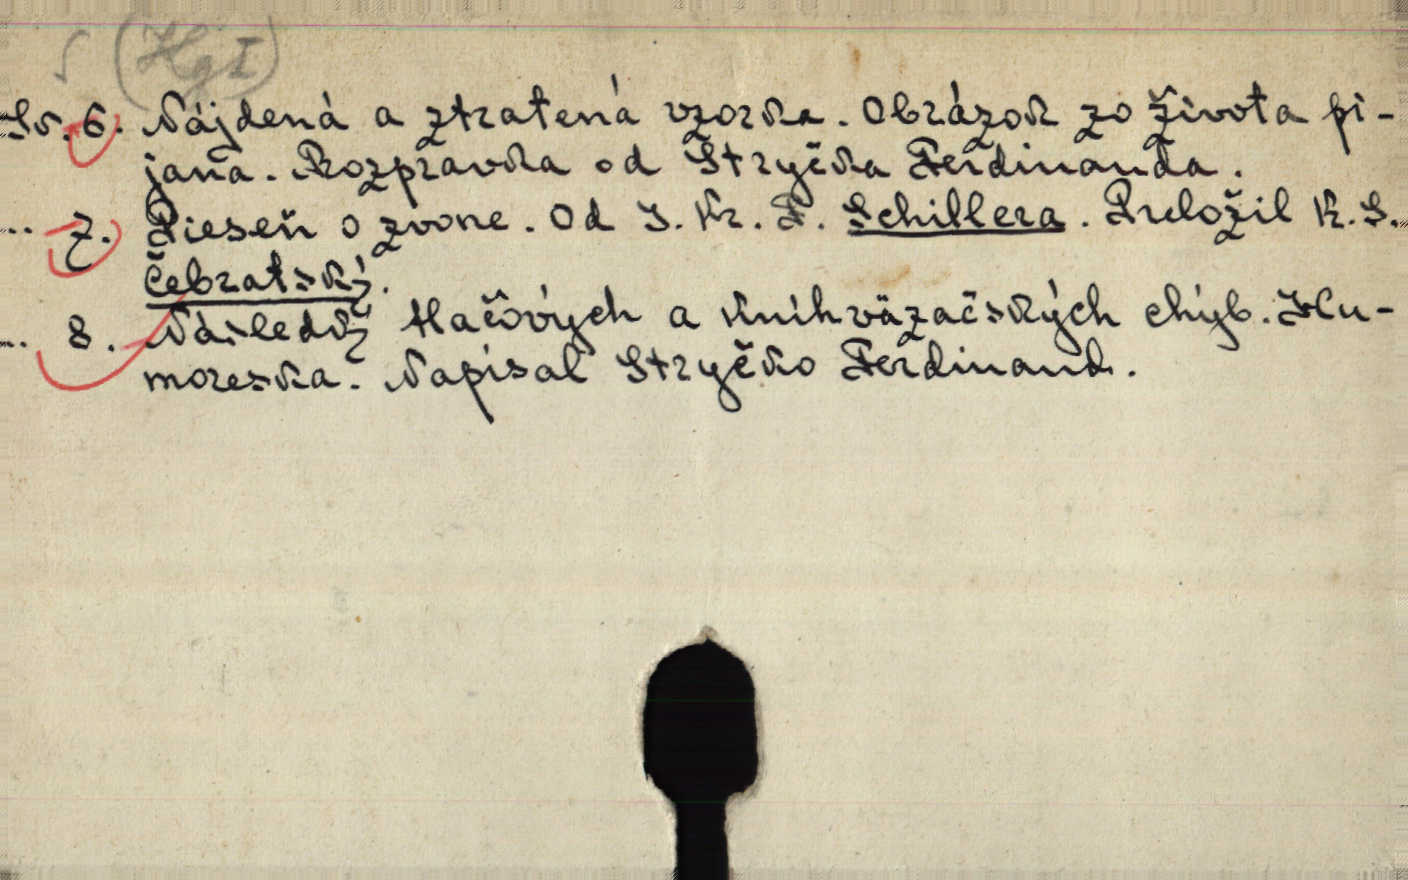 (Hg I)
Sv. 6. Nájdená a ztratená vzorka. Obrázok zo života pi-
jana. Rozprávka od Strýčka Ferdinanda.
.. 7. Pieseň o zvone. Od J. Kr. F. Schillera. Preložil K. S.
čebratský.
.. 8. Následky tlačových a knihväzačských chýb. Hu-
moreska. Napísal Strýčko Ferdinand.